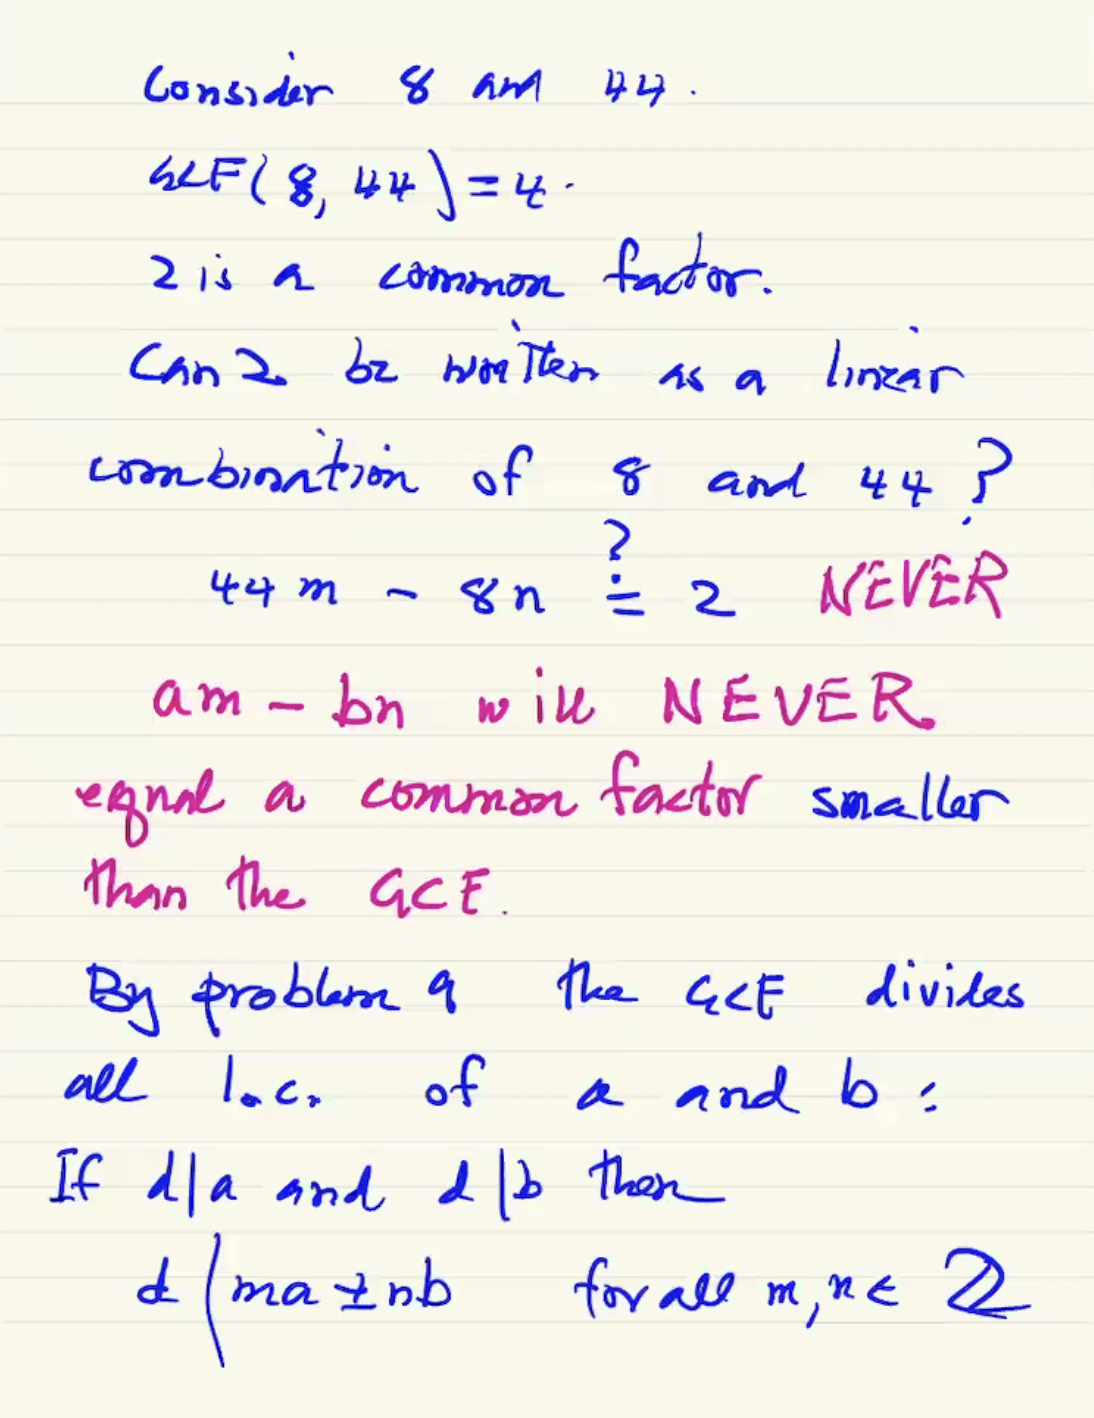 Consider 8 and 44.
GCF(8, 44) = 4.
2 is a common factor.
Can 2 be written as a linear
combination of 8 and 44?
44m - 8n ≟ 2 NEVER
am - bn will NEVER
equal a common factor smaller
than the GCF.
By problem 9 the GCF divides
all l.c. of a and b:
If d|a and d|b then
d | ma ± nb for all m, n ∈ ℤ